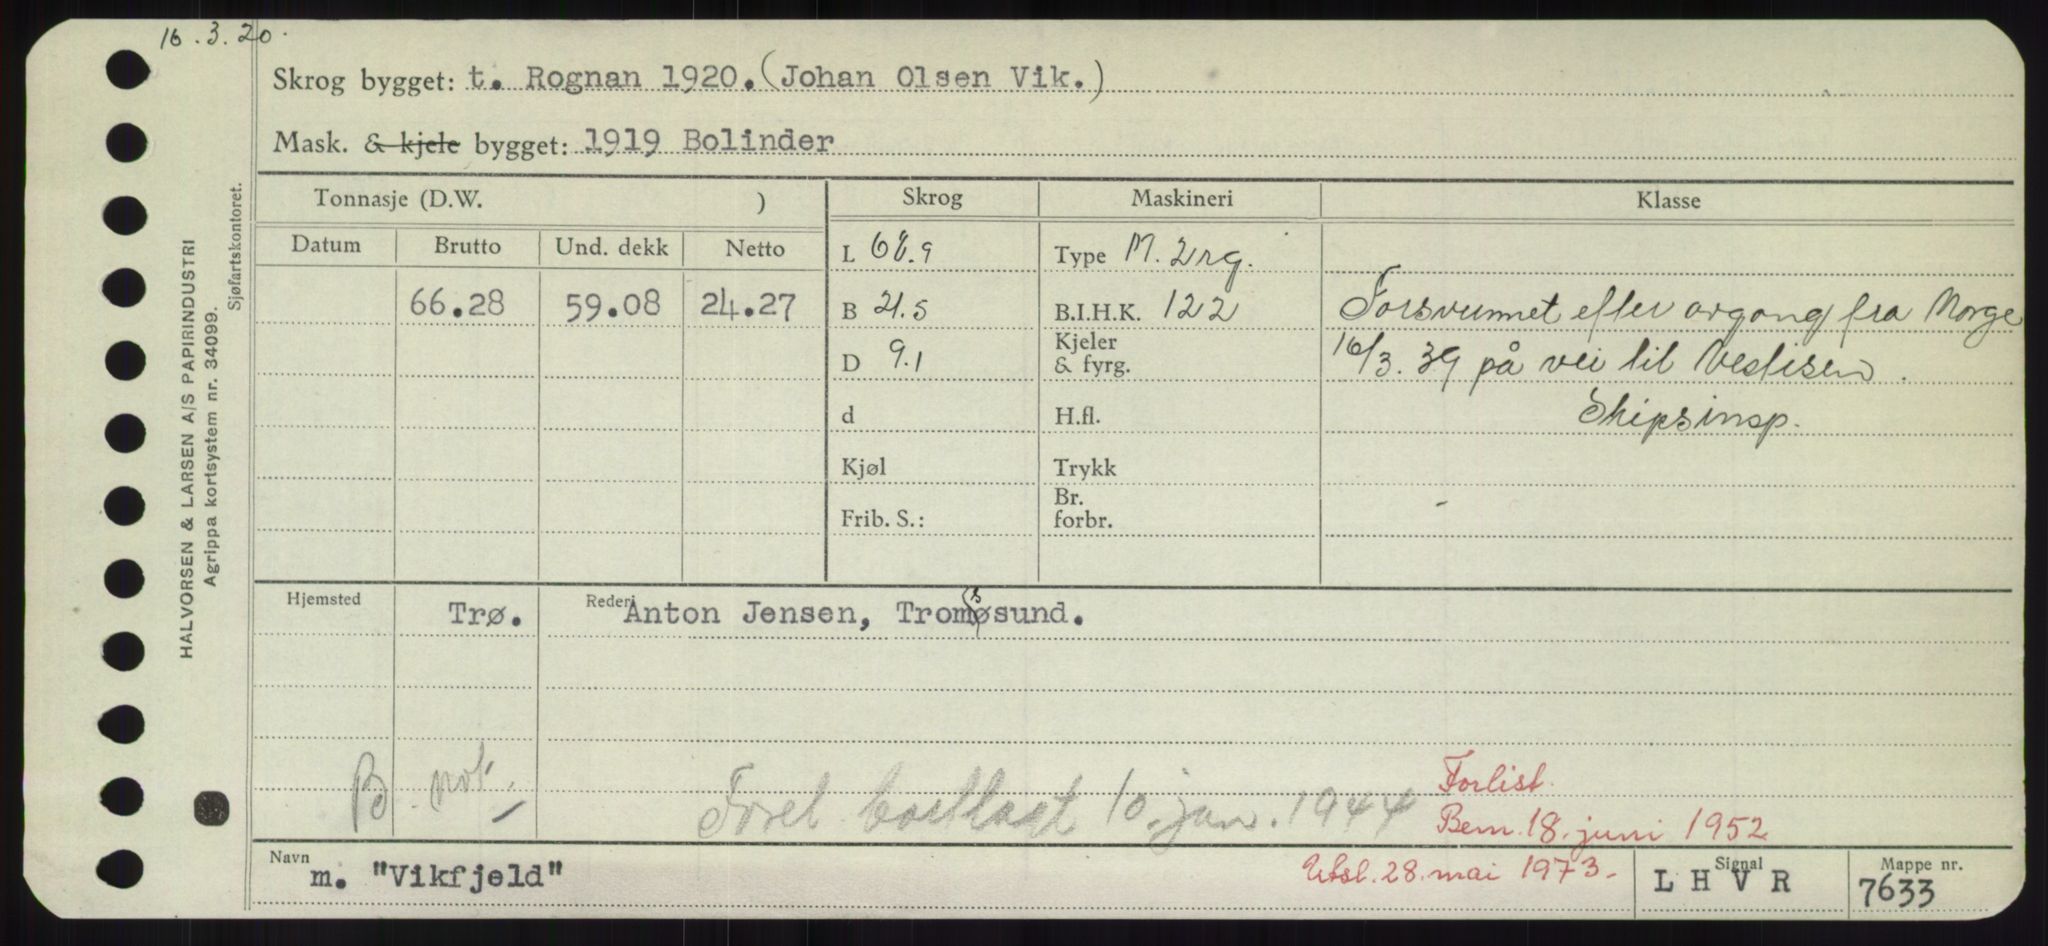 16.3.20.
Skrog bygget: t. Rognan 1920. (Johan Olsen Vik.)
Mask. & kjele bygget: 1919 Bolinder
Tonnasje (D.W. )
Skrog
Maskineri
Klasse
Datum Brutto Und. dekk Netto
66.28 59.08 24.27
L 68.9
B 21.5
D 9.1
d
Kjøl
Frib. S.:
Type M. 2
B.I.H.K. 122
Kjeler
& fyrg.
H.fl.
Trykk
Br.
forbr.
Forsvunnet efter avgang fra Norge
16/3. 39 på vei til Vestisen.
Skipsinsp.
Hjemsted Trø. Rederi Anton Jensen, Tromsøsund.
B. not.
Foret 10. jan. 1944
Forlist.
Bem. 18. juni 1952
Utsl. 28. mai 1973.
Navn m. "Vikfjeld"
Signal LHVR
Mappe nr. 7633
HALVORSEN & LARSEN A/S PAPIRINDUSTRI
Agrippa kortsystem nr. 34099.
Sjøfartskontoret.